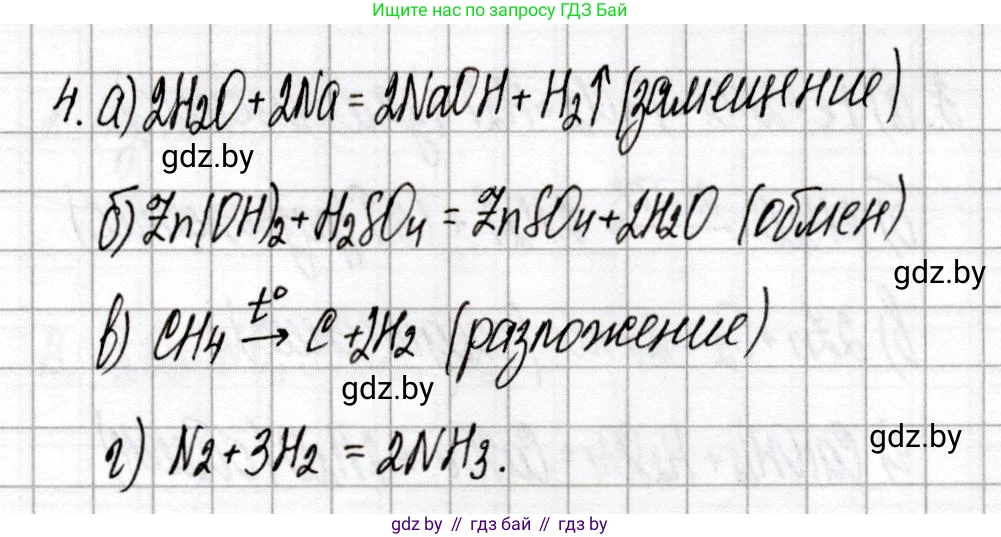 Ищите нас по запросу ГДЗ Бай
4. а) 2H2O + 2Na = 2NaOH + H2↑ (замещение)
gdz.by
б) Zn(OH)2 + H2SO4 = ZnSO4 + 2H2O (обмен)
gdz.by
в) CH4 t°→ C + 2H2 (разложение)
gdz.by
г) N2 + 3H2 = 2NH3.
gdz.by
gdz by // гдз бай // гдз by